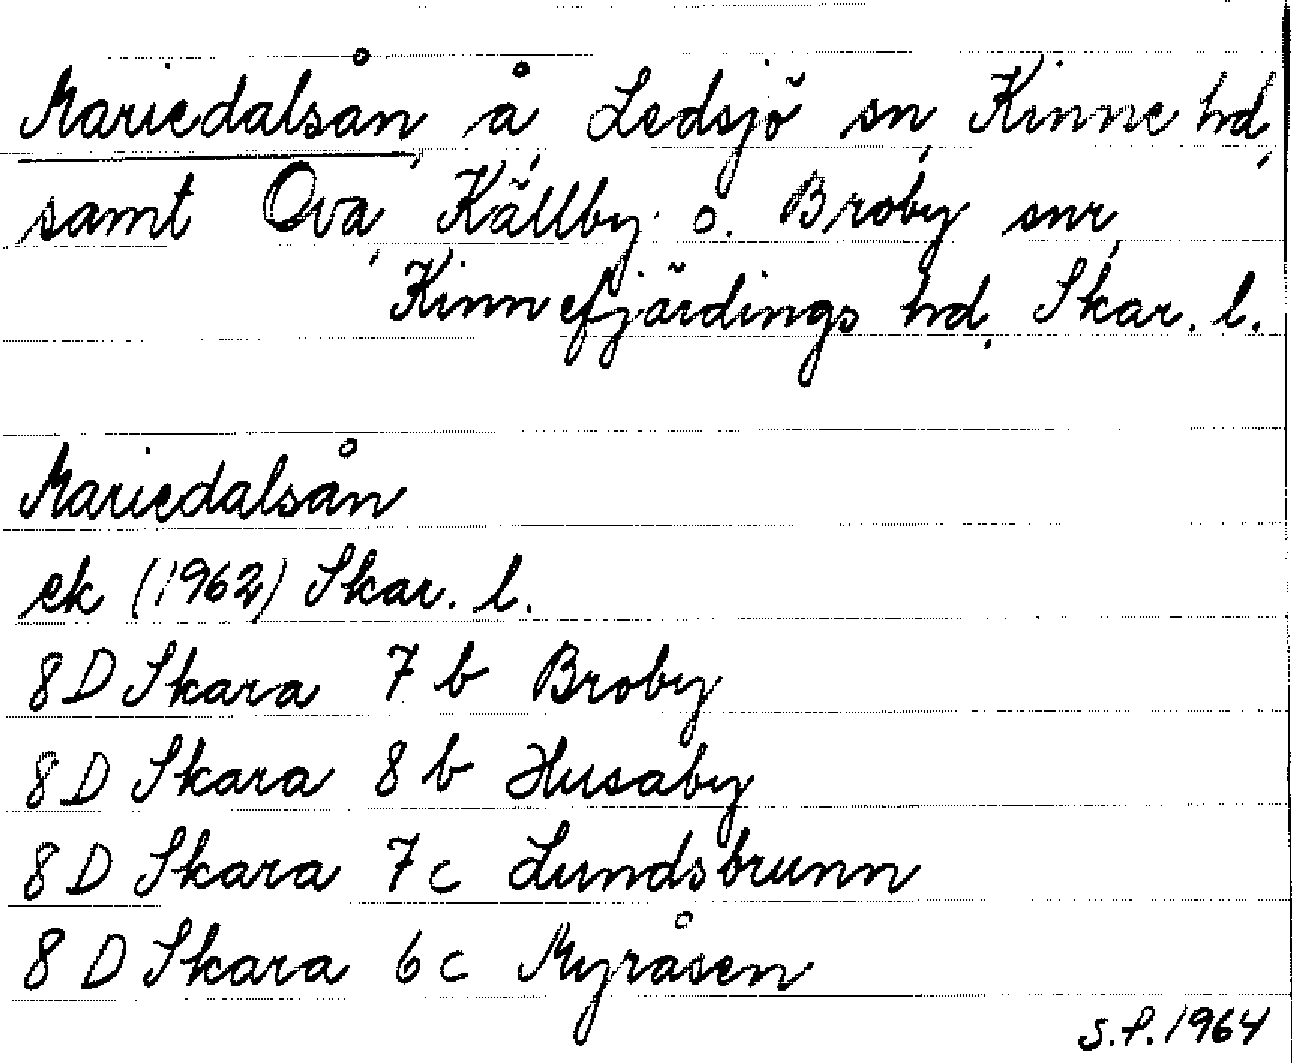 Mariedalsån, å, Ledsjö sn, Kinne hd,
samt Ova, Källby o. Broby snr,
Kinnefjärdings hd, Skar. l.
Mariedalsån
ek (1962) Skar. l.
8 D Skara 7 b Broby
8 D Skara 8 b Husaby
8 D Skara 7 c Lundsbrunn
8 D Skara 6 c Myråsen
S.P. 1964